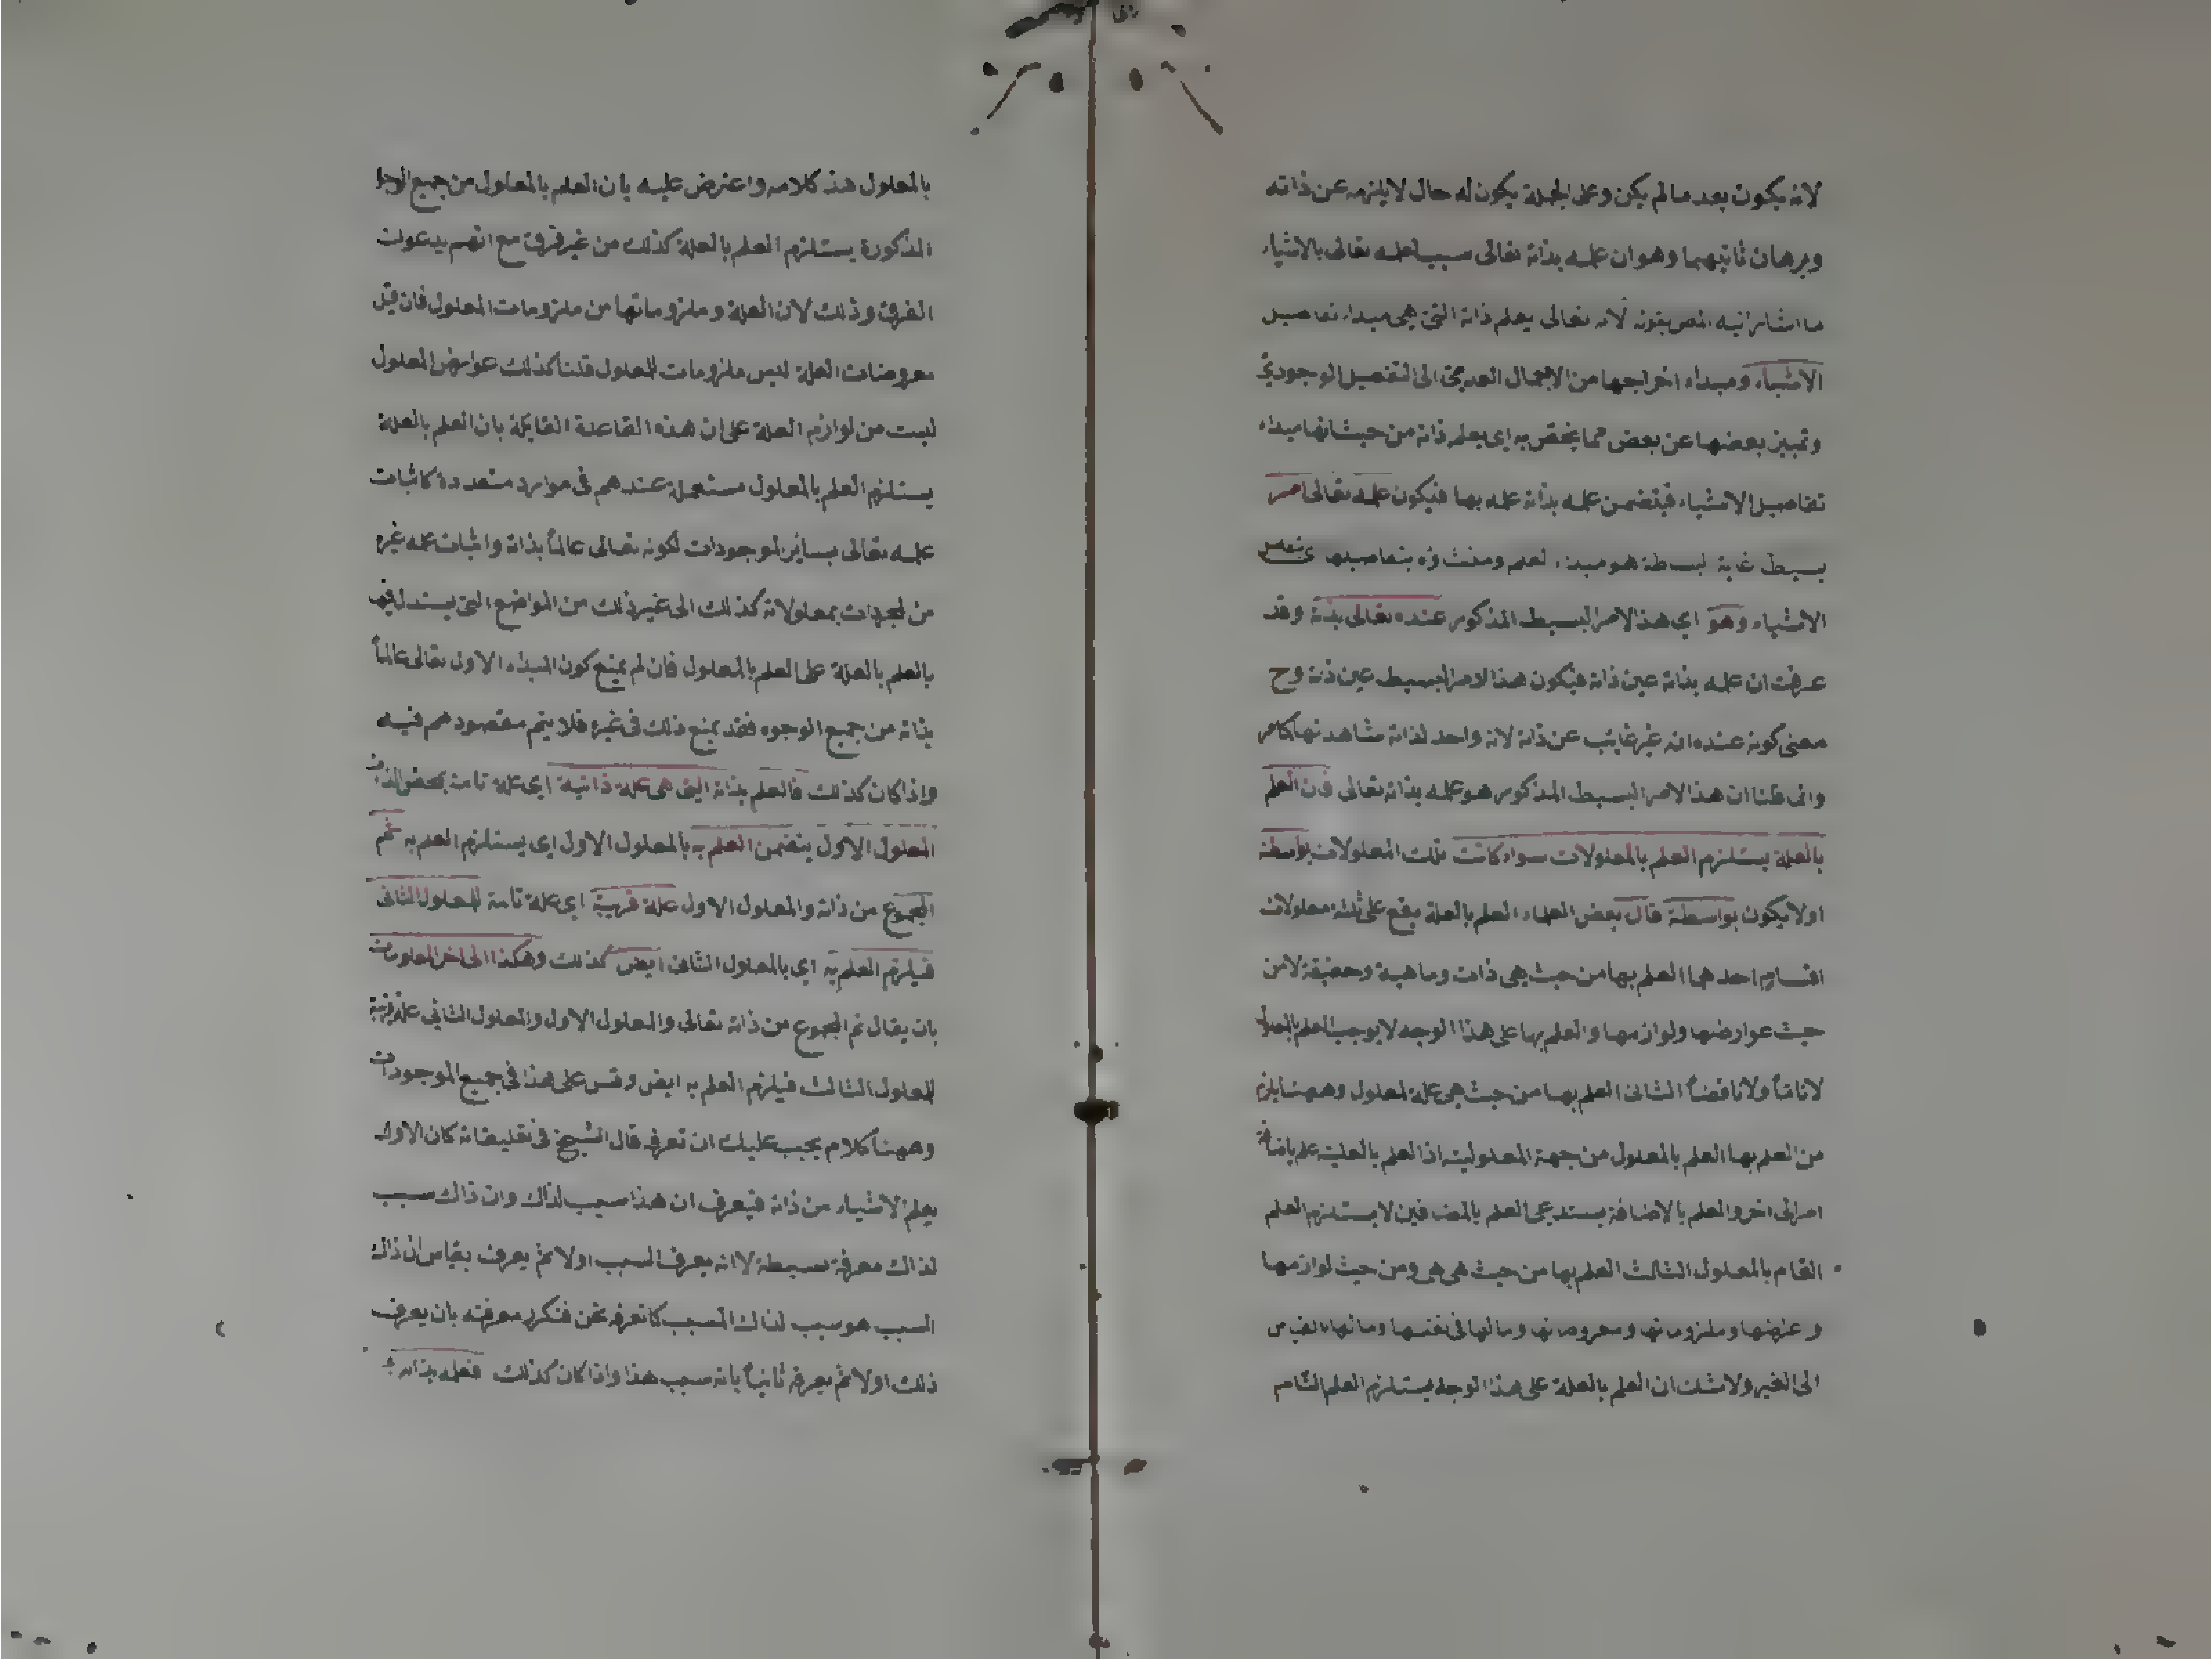 لانه يكون بعد ما لم يكن وعلى الجملة يكون له حال لا يلزمه عن ذاته
وبرهان ثانيهما وهو ان علمه بذاته تعالى سبب لعلمه تعالى بالاشياء
ما اشار اليه المص بقوله لانه تعالى يعلم ذاته التي هي مبداء تفاصيل
الاشياء ومبداء اخراجها من الاجمال العدمي الى التفصيل الوجودي
وتميز بعضها عن بعض مما يختص به اى يعلم ذاته من حيث انها مبداء
تفاصيل الاشياء فيتضمن علمه بذاته علمه بها فيكون علمه تعالى امر
بسيط غاية البساطة هو مبداء لعلم ومنشاؤه بتفاصيلها
الاشياء وهو اي هذا الامر البسيط المذكور عنده تعالى بذاته وقد
عرفت ان علمه بذاته عين ذاته فيكون هذا الامر البسيط عين ذاته وح
معنى كونه عنده انه غير غايب عن ذاته لانه واحد لذاته مشاهد لها كامر
وانما قلنا ان هذا الامر البسيط المذكور هو علمه بذاته تعالى فان العلم
بالعلة يستلزم العلم بالمعلولات سواء كانت تلك المعلولات بواسطة
اولا يكون بواسطة قال بعض العلماء العلم بالعلة يقع على ثلثة معلولات
اقسام احدها العلم بها من حيث هي ذات وماهية وحقيقة لا من
حيث عوارضها ولوازمها والعلم بها على هذا الوجه لا يوجب العلم بالمعلول
لا تاما ولا ناقصا الثاني العلم بها من حيث هي علة لمعلول وههنا يلزم
من العلم بها العلم بالمعلول من جهة المعلولية اذ العلم بالعلية علم باضافة
امر الى اخر والعلم بالاضافة يستدعي العلم بالمضافين لا يستلزم العلم
التام بالمعلول الثالث العلم بها من حيث هي هي ومن حيث لوازمها
وعوارضها وملزوماتها ومعروضاتها وما لها في نفسها وما لها بالقياس
الى الغير ولا شك ان العلم بالعلة على هذا الوجه يستلزم العلم التام
بالمعلول هذ كلامه واعترض عليه بان العلم بالمعلول من جميع الوجوه
المذكورة يستلزم العلم بالعلة كذلك من غير فرق مع انهم يدعون
الفرق وذلك لان العلة وملزوماتها من ملزومات المعلول فان قيل
معروضات العلة ليس ملزومات للمعلول قلنا كذلك عوارض المعلول
ليست من لوازم العلة على ان هذه القاعدة القايلة بان العلم بالعلة
يستلزم العلم بالمعلول مستعملة عندهم في موارد متعددة كاثبات
علمه تعالى بساير الموجودات لكونه تعالى عالماً بذاته واثبات علم غيره
من المجردات بمعلولاته كذلك الى غير ذلك من المواضع التي يستدل فيها
بالعلم بالعلة على العلم بالمعلول فان لم يمنع كون المبداء الاول تعالى عالماً
بذاته من جميع الوجوه فقد يمنع ذلك في غيره فلا يتم مقصودهم فيه
واذا كان كذلك فالعلم بذاته التي هي علة ذاتية اي علة تامة بمحض الذات
المعلول الاول يتضمن العلم به بالمعلول الاول اي يستلزم العلم به ثم
المجموع من ذاته والمعلول الاول علة قريبة اي علة تامة للمعلول الثاني
فيلزم العلم به اي بالمعلول الثاني ايض كذلك وهكذا الى اخر المعلومات
بان يقال ثم المجموع من ذاته تعالى والمعلول الاول والمعلول الثاني علة قريبة
للمعلول الثالث فيلزم العلم به ايض وقس على هذا في جميع الموجودات
وههنا كلام يجب عليك ان تعرفه قال الشيخ في تعليقاته كان الاول
يعلم الاشياء من ذاته فيعرف ان هذا سبب لذاك وان ذاك سبب
لذاك معرفة بسيطة لا انه يعرف السبب اولا ثم يعرف بقياس ان ذاك
السبب هو سبب لذاك المسبب كما نعرفه نحن فتكرر معرفته بان يعرف
ذلك اولا ثم يعرفه ثانياً بانه سبب هذا واذا كان كذلك فعلمه بذاته